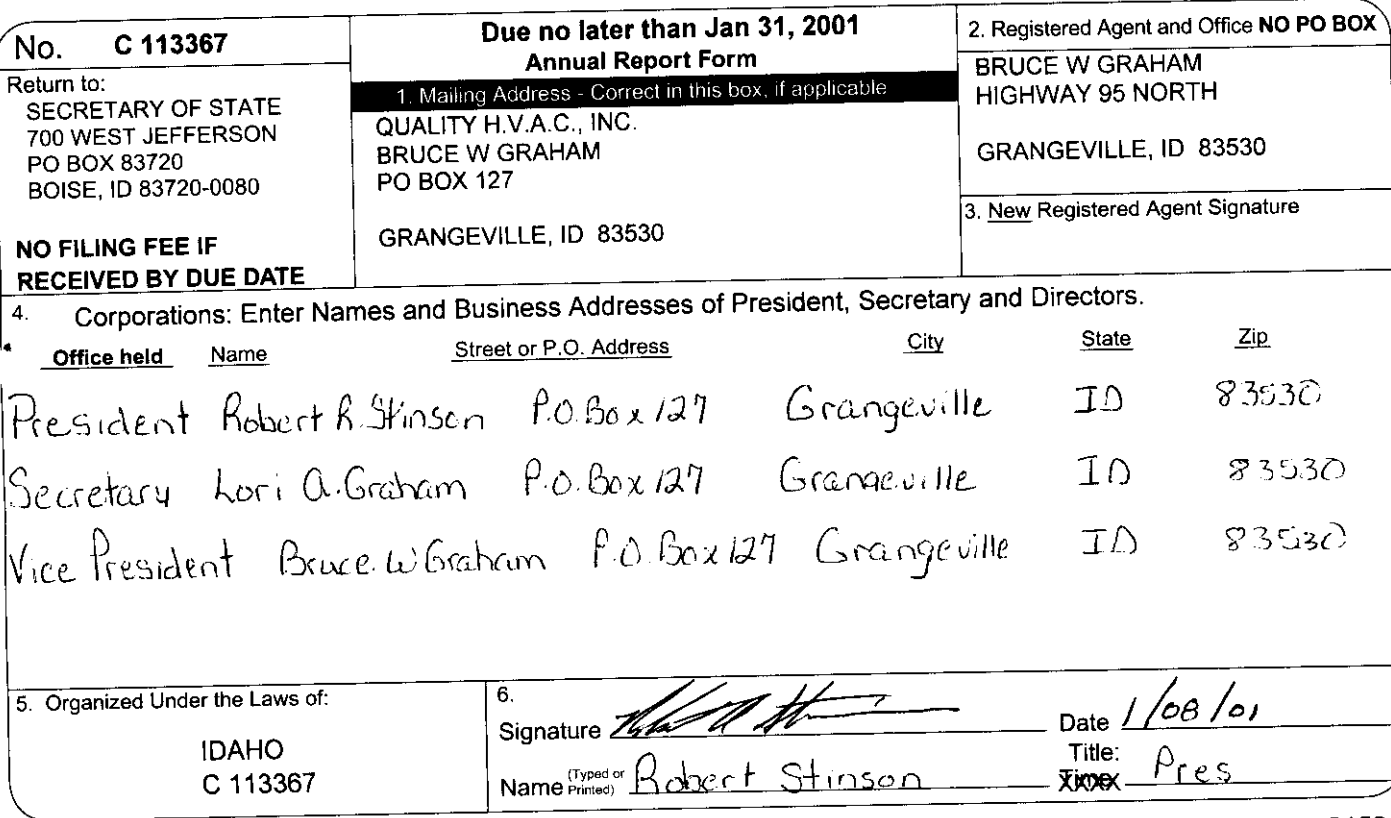 No. C 113367
Return to:
SECRETARY OF STATE
700 WEST JEFFERSON
PO BOX 83720
BOISE, ID 83720-0080
NO FILING FEE IF
RECEIVED BY DUE DATE
Due no later than Jan 31, 2001
Annual Report Form
1. Mailing Address - Correct in this box, if applicable
QUALITY H.V.A.C., INC.
BRUCE W GRAHAM
PO BOX 127
GRANGEVILLE, ID 83530
2. Registered Agent and Office NO PO BOX
BRUCE W GRAHAM
HIGHWAY 95 NORTH
GRANGEVILLE, ID 83530
3. New Registered Agent Signature
4. Corporations: Enter Names and Business Addresses of President, Secretary and Directors.
Office held Name Street or P.O. Address City State Zip
President Robert R. Stinson P.O. Box 127 Grangeville ID 83530
Secretary Lori A. Graham P.O. Box 127 Grangeville ID 83530
Vice President Bruce. W Graham P.O. Box 127 Grangeville ID 83530
5. Organized Under the Laws of:
IDAHO
C 113367
6.
Signature Date 1/08/01
Name (Typed or Printed) Robert Stinson Title: Pres